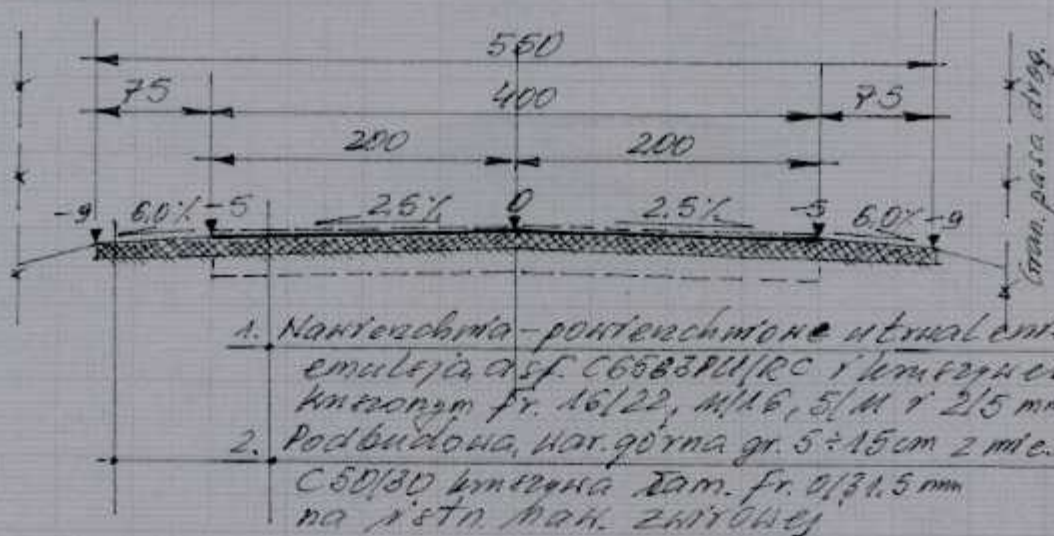 550
75 400 75
200 200
-9 6,0% -5 2,5% 0 2,5% -5 6,0% -9
Gran. pasa drog.
1. Nawierzchnia - powierzchniowe utrwaleni
emulsją asf. C65B3PU/RC i kruszywe
kruszonym fr. 16/22, 11/16, 5/11 i 2/5 mm
2. Podbudowa, war. górna gr. 5÷15cm z mie.
C50/30 kruszywa łam. fr. 0/31,5 mm
na istn. naw. żwirowej